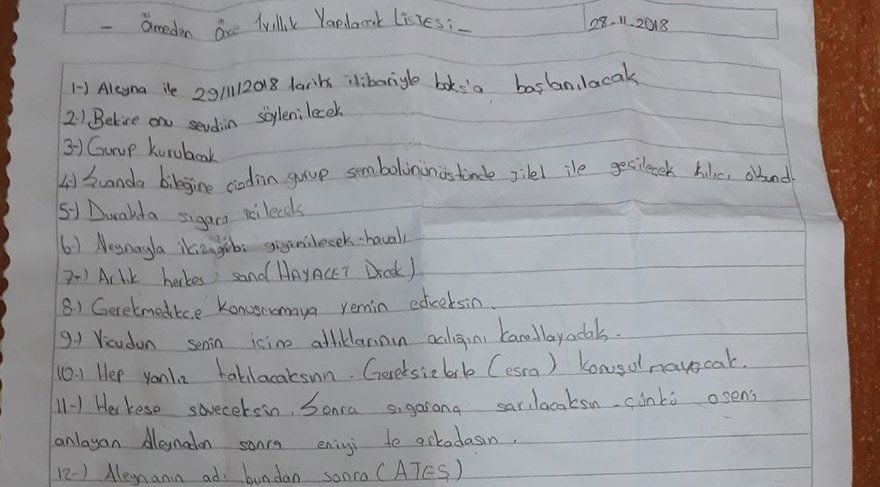 - Ölmeden Önce 1 yıllık Yapılacak LİSTESİ -
28.11.2018
1-) Aleyna ile 29/11/2018 tarihi itibariyle boks'a başlanılacak
2-) Bekire onu sevdiin söylenilecek
3-) Gurup kurulacak
4-) Şuanda bileğine çizdiin gurup sembolünün üstünde jilet ile geçilecek kılıcı
5-) Durakta sigara içilecek
6-) Aleynayla ikiz gibi giyinilecek-havalı
7-) Artık herkes sana (HAYALET Dicek)
8-) Gerekmedikce konuşmamaya yemin ediceksin.
9-) Vicudun senin içine attıklarının acılığını kanıtlayacak.
10-) Hep yanlız takılacaksın. Gereksizlerle (esra) konuşulmayacak.
11-) Herkese söveceksin. Sonra sigarana sarılacaksın - çünkü o seni
anlayan Aleynadan sonra eniyi te arkadaşın.
12-) Aleynanın adı bundan sonra (ATEŞ)